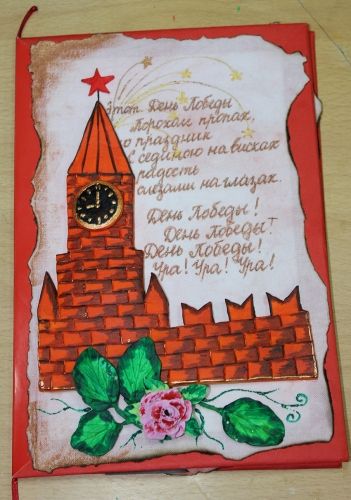 Этот День Победы
Порохом пропах,
о праздник
С сединою на висках
радость
слезами на глазах.
День Победы!
День Победы!
День Победы!
Ура! Ура! Ура!